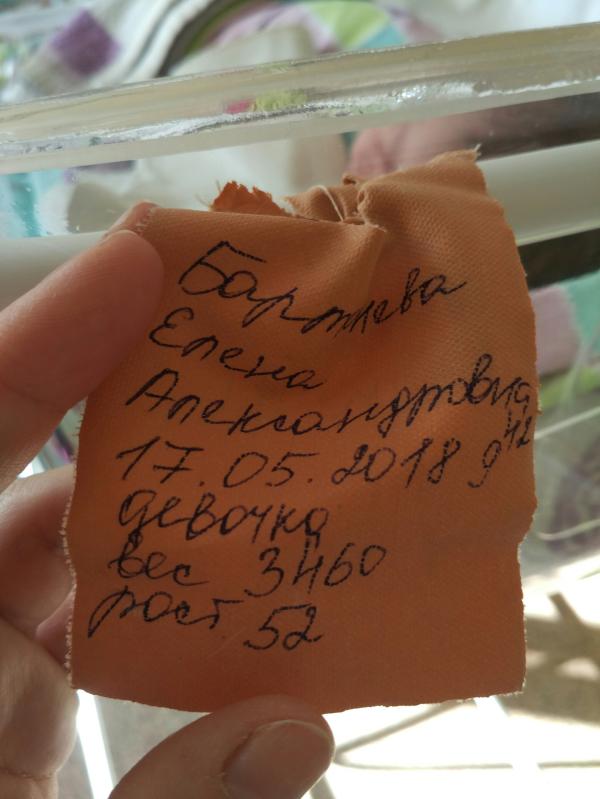 Елена
Александровна
17.05.2018 9 42
девочка
вес 3460
рост 52